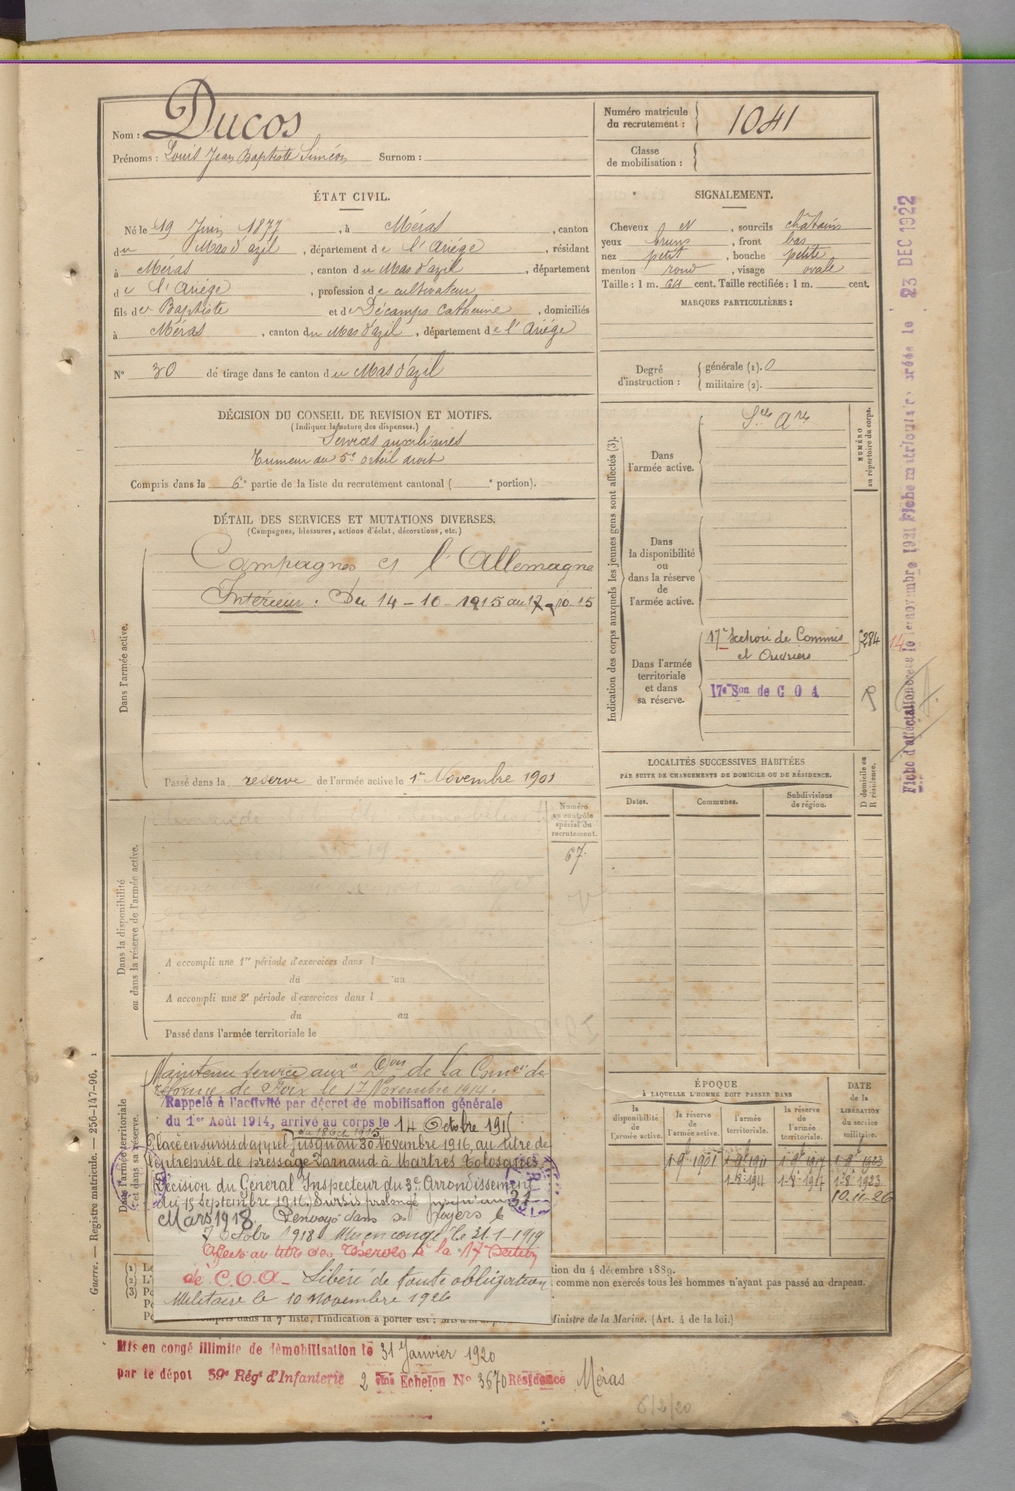 Nom : Ducos
Prénoms : Louis Jean Baptiste Siméon Surnom :
Numéro matricule du recrutement : 1041
Classe de mobilisation :
ÉTAT CIVIL.
Né le 19 Juin 1877, à Méras, canton
du Mas d'azil, département de l'Ariége, résidant
à Méras, canton du Mas d'azil, département
de l'Ariége, profession de cultivateur
fils de Baptiste et de Décamps Catherine, domiciliés
à Méras, canton du Mas d'azil, département de l'Ariége
N° 30 de tirage dans le canton du Mas d'azil
SIGNALEMENT.
Cheveux et, sourcils châtains
yeux bruns, front bas
nez petit, bouche petite
menton rond, visage ovale
Taille : 1 m. 64 cent. Taille rectifiée : 1 m. cent.
MARQUES PARTICULIÈRES :
Degré d'instruction : générale (1). 0
militaire (2).
DÉCISION DU CONSEIL DE REVISION ET MOTIFS.
(Indiquer la nature des dispenses.)
Services auxiliaires
Tumeur au 5e orteil droit
Compris dans la 6e partie de la liste du recrutement cantonal ( e portion).
DÉTAIL DES SERVICES ET MUTATIONS DIVERSES.
(Campagnes, blessures, actions d'éclat, décorations, etc.)
Dans l'armée active.
Campagnes l'Allemagne
Intérieur : Du 14-10-1915 au 17-10-15
Passé dans la réserve de l'armée active le 1er Novembre 1901
Indication des corps auxquels les jeunes gens sont affectés (3).
NUMÉRO au répertoire du corps.
Dans l'armée active.
Sces Ares
Dans la disponibilité ou dans la réserve de l'armée active.
Dans l'armée territoriale et dans sa réserve.
17e Section de Commis
et Ouvriers
284
17e Son de C O A
LOCALITÉS SUCCESSIVES HABITÉES
PAR SUITE DE CHANGEMENTS DE DOMICILE OU DE RÉSIDENCE.
Dates.
Communes.
Subdivisions de région.
D domicile ou R résidence.
Dans la disponibilité ou dans la réserve de l'armée active.
Numéro au contrôle spécial du recrutement.
67
A accompli une 1re période d'exercices dans l
du au
A accompli une 2e période d'exercices dans l
du au
Passé dans l'armée territoriale le
Dans l'armée territoriale et dans sa réserve.
Maintenu service auxre Don de la Comon de
réforme de Foix le 17 Novembre 1914.
Rappelé à l'activité par décret de mobilisation générale
du 1er Août 1914, arrivé au corps le 14 Octobre 191
du 18 Oct 1915
Placé en sursis d'appel jusqu'au 30 Novembre 1916, au titre de
l'entreprise de pressage Larnaud à Martres Tolosanes
Décision du Général Inspecteur du 3e Arrondissement
du 15 Septembre 1916. Sursis prolongé jusqu'au 31
Mars 1918 Renvoyé dans ses foyers le
7 Octobre 1918 Mis en congé le 31-1-1919
Affecté au titre des Réserves à la 17e Section
de C.O.A. Libéré de toute obligation
Militaire le 10 novembre 1926
ÉPOQUE
À LAQUELLE L'HOMME DOIT PASSER DANS
la disponibilité de l'armée active.
la réserve de l'armée active.
l'armée territoriale.
la réserve de l'armée territoriale.
DATE DE LA LIBÉRATION DU SERVICE militaire.
10-11-26
tion du 4 décembre 1889.
comme non exercés tous les hommes n'ayant pas passé au drapeau.
Ministre de la Marine. (Art. 4 de la loi.)
Guerre. — Registre matricule. — 256-147-96.
Mis en congé illimité de démobilisation le 31 Janvier 1920
par le dépôt 59e Régt d'Infanterie 2 ème Echelon N° 3670 Résidence Méras
6/2/20
Fiche d'affectation créée le novembre 1921 Fiche matriculaire créée le 23 DEC 1922